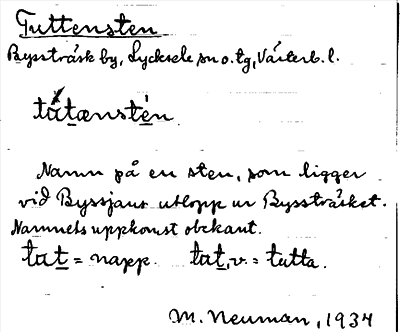 Tuttensten
Bysträsk by, Lycksele sn o. tg, Västerb. l.
tátænstén
Namn på en sten, som ligger
vid Byssjans utlopp ur Bysträsket.
Namnets uppkomst obekant.
tat = napp. tat, v. = tutta.
M. Neuman, 1937